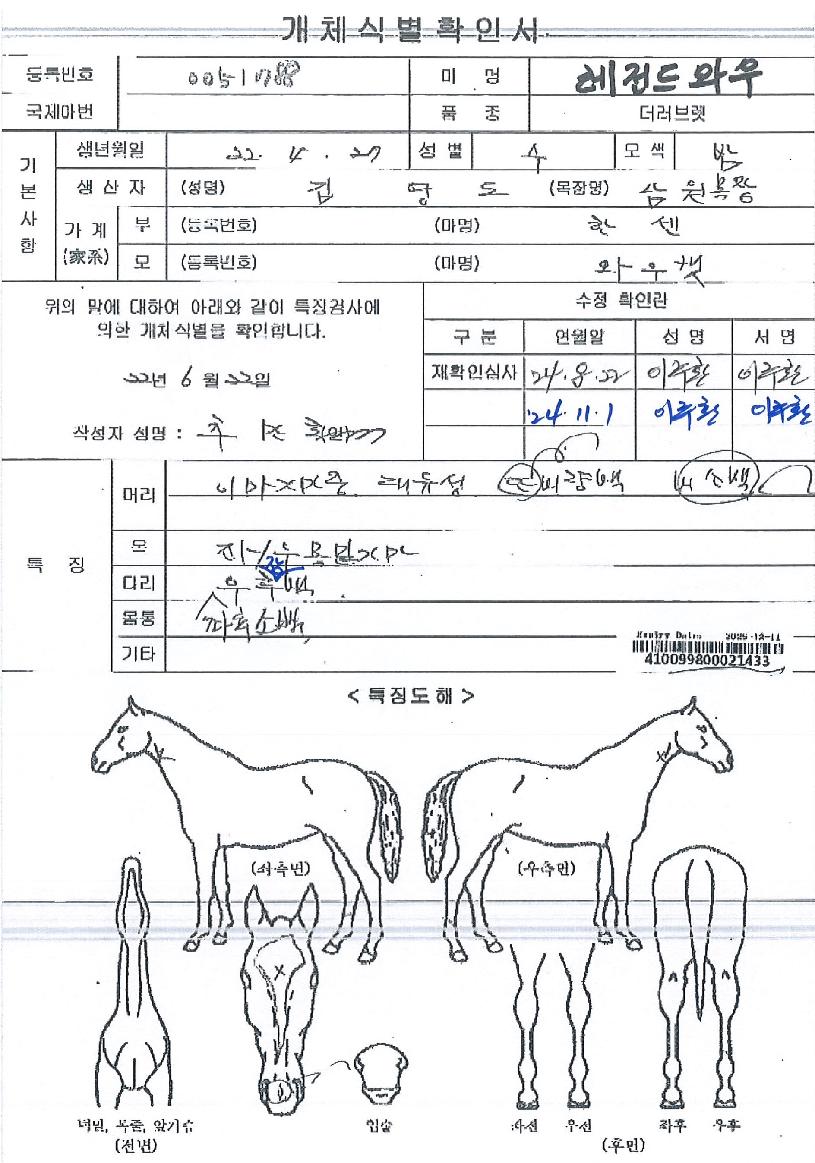 개체식별확인서
등록번호 0051788 마 명 레전드와우
국제마번 품 종 더러브렛
기본사항
생년월일 22. 4. 27 성별 수 모색 밤
생산자 (성명) 김 명 도 (목장명) 삼원목장
가계 (家系) 부 (등록번호) (마명) 한센
모 (등록번호) (마명) 와우캣
위의 말에 대하여 아래와 같이 특징검사에
의한 개체식별을 확인합니다.
22년 6월 22일
작성자 성명 :
수정 확인란
구분 연월일 성명 서명
재확인심사 24.8.22 이주환 이주환
'24.11.1 이주환 이주환
특 징
머리 대유성 비량백
목
다리
몸통
기타
2025-12-11
410099800021433
< 특징도해 >
(좌측면) (우측면)
턱밑, 목줄, 앞가슴
(전면)
입술
좌전 우전 좌후 우후
(후면)